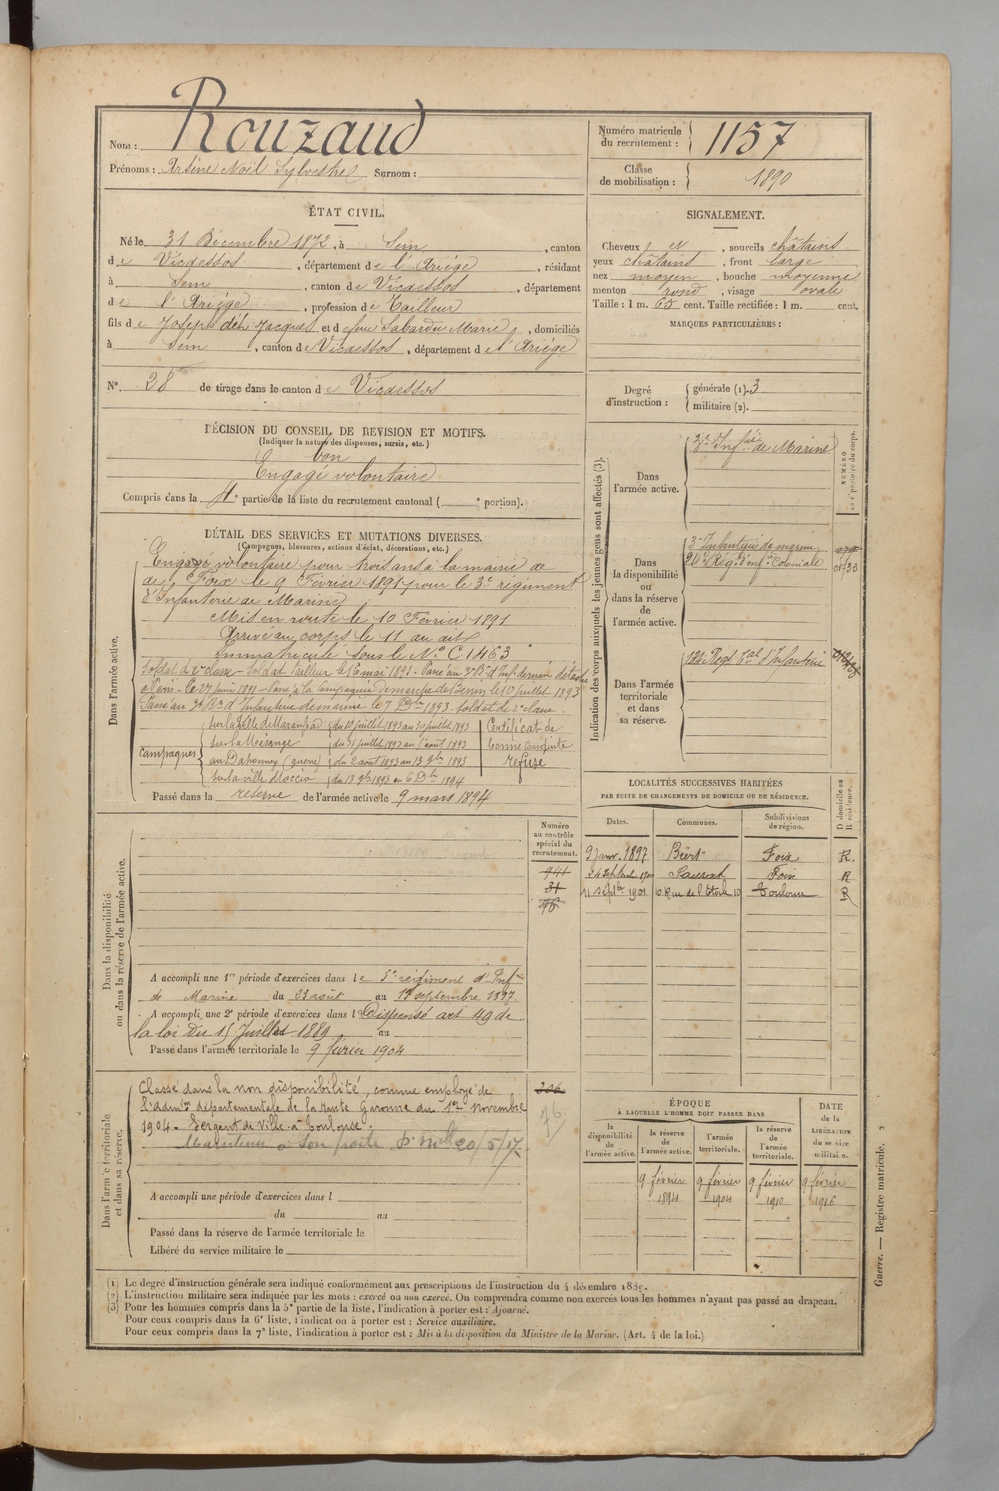 Nom : Rouzaud
Prénoms : Arsène Noël Sylvestre Surnom :
Numéro matricule du recrutement : 1157
Classe de mobilisation : 1890
ÉTAT CIVIL.
Né le 31 Décembre 1872, à Sem, canton
de Vicdessos, département de l'Ariège, résidant
à Sem, canton de Vicdessos, département
de l'Ariège, profession de Tailleur
fils de Joseph dit Jacques et de feue Sabardu Marie, domiciliés
à Sem, canton de Vicdessos, département de l'Ariège
N° 28 de tirage dans le canton de Vicdessos
SIGNALEMENT.
Cheveux et, sourcils châtains
yeux châtains, front large
nez moyen, bouche moyenne
menton rond, visage ovale
Taille : 1 m. 65 cent. Taille rectifiée : 1 m. cent.
MARQUES PARTICULIÈRES :
Degré d'instruction : générale (1). 3
militaire (2).
DÉCISION DU CONSEIL DE REVISION ET MOTIFS.
(Indiquer la nature des dispenses, sursis, etc.)
bon
Engagé volontaire
Compris dans la 4e partie de la liste du recrutement cantonal ( e portion).
DÉTAIL DES SERVICES ET MUTATIONS DIVERSES.
(Campagnes, blessures, actions d'éclat, décorations, etc.)
Dans l'armée active.
Engagé volontaire pour trois ans à la mairie de
de Foix le 9 Février 1891 pour le 3e régiment
d'Infanterie de Marine
Mis en route le 10 Février 1891
Arrivé au corps le 11 au dit
Immatriculé sous le No C 1463
Soldat de 2e classe - Soldat tailleur le 16 mai 1891. Passé au
à Paris - le 27 juin 1891 - Passé à la Compagnie de marche du Bénin le 10 juillet 1893
Passé au d'Infanterie de marine le 7 1893 soldat de 1e classe.
Campagnes
sur la Ville de Maranhao du 10 juillet 1893 au 30 juillet 1893
sur la Mésange du 31 juillet 1893 au 1 août 1893
au Dahomey (guerre) du 2 août 1893 au 13 9bre 1893
sur la ville du 13 9bre 1893 au 6 Dbre 1894
Certificat de
bonne conduite
refusé
Passé dans la réserve de l'armée active le 9 mars 1894
Indication des corps auxquels les jeunes gens sont affectés (3).
NUMÉRO au répertoire du corps.
Dans l'armée active.
Infie de Marine
Dans la disponibilité ou dans la réserve de l'armée active.
3e Infanterie de marine
24e Rég. d'Infie Coloniale
Dans l'armée territoriale et dans sa réserve.
Regt Tal d'Infanterie
LOCALITÉS SUCCESSIVES HABITÉES
PAR SUITE DE CHANGEMENTS DE DOMICILE OU DE RÉSIDENCE.
Dates. Communes. Subdivisions de région. D domicile ou R résidence.
9 janv. 1897 Biert Foix R.
24 Septembre Saurat Foix R
11 Septbre 1901 10 Rue de l'Etoile 10 Toulouse R
Numéro au contrôle spécial du recrutement.
941
31
46
Dans la disponibilité ou dans la réserve de l'armée active.
A accompli une 1re période d'exercices dans le 3e régiment d'Infie
de Marine du 23 août au 19 septembre 1897.
A accompli une 2e période d'exercices dans l Dispensé art 49 de
la loi du 15 Juillet 1889 au
Passé dans l'armée territoriale le 9 février 1904
Dans l'armée territoriale et dans sa réserve.
Classé dans la non disponibilité, comme employé de
l'admon départementale de la Haute Garonne du 1er Novembre
1904. Sergent de Ville à Toulouse.
Maintenu à son poste 20/5/17.
206
46
A accompli une période d'exercices dans l
du au
Passé dans la réserve de l'armée territoriale le
Libéré du service militaire le
ÉPOQUE
À LAQUELLE L'HOMME DOIT PASSER DANS
DATE de la LIBÉRATION du service militaire.
la disponibilité de l'armée active. la réserve de l'armée active. l'armée territoriale. la réserve de l'armée territoriale.
9 février 1894 9 février 1904 9 février 1910 9 février 1916
(1) Le degré d'instruction générale sera indiqué conformément aux prescriptions de l'instruction du 4 décembre 1889.
(2) L'instruction militaire sera indiquée par les mots : exercé ou non exercé. On comprendra comme non exercés tous les hommes n'ayant pas passé au drapeau.
(3) Pour les hommes compris dans la 5e partie de la liste, l'indication à porter est : Ajourné.
Pour ceux compris dans la 6e liste, l'indication à porter est : Service auxiliaire.
Pour ceux compris dans la 7e liste, l'indication à porter est : Mis à la disposition du Ministre de la Marine. (Art. 4 de la loi.)
Guerre. — Registre matricule. 2